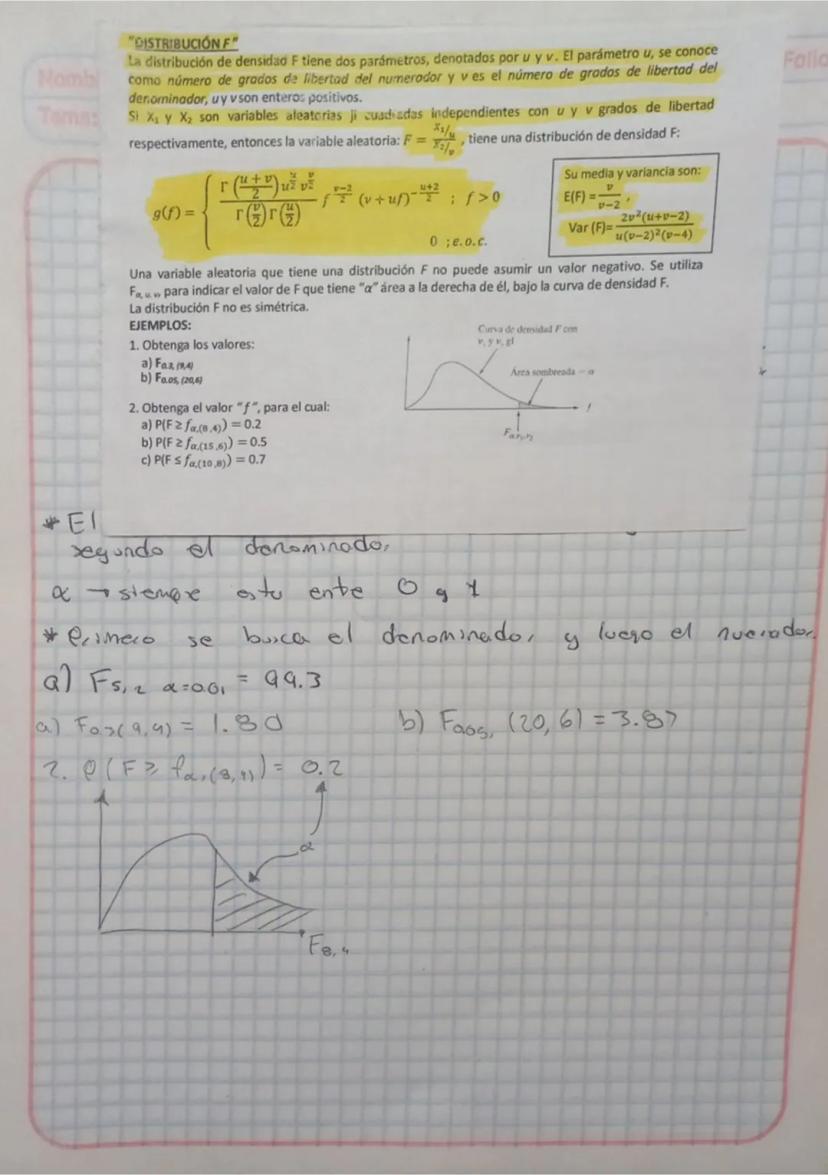 Nomb
Tema:
Folio
"DISTRIBUCIÓN F"
La distribución de densidad F tiene dos parámetros, denotados por u y v. El parámetro u, se conoce
como número de grados de libertad del numerador y v es el número de grados de libertad del
denominador, u y v son enteros positivos.
Si X₁ y X₂ son variables aleatorias ji cuadradas independientes con u y v grados de libertad
respectivamente, entonces la variable aleatoria: F = (X₁/u)/(X₂/v), tiene una distribución de densidad F:
g(f) = { Γ((u+v)/2) u^(u/2) v^(v/2) / Γ(v/2) Γ(u/2) f^((v−2)/2) (v + uf)^(−(u+2)/2) ; f > 0
0 ; e.o.c.
Su media y variancia son:
E(F) = v/(v−2) ,
Var (F)= 2v²(u+v−2)/(u(v−2)²(v−4))
Una variable aleatoria que tiene una distribución F no puede asumir un valor negativo. Se utiliza
Fα, u, v, para indicar el valor de F que tiene "α" área a la derecha de él, bajo la curva de densidad F.
La distribución F no es simétrica.
EJEMPLOS:
1. Obtenga los valores:
a) F
b) F0.05, (20,6)
2. Obtenga el valor "f", para el cual:
a) P(F ≥ fα,(8,4)) = 0.2
b) P(F ≥ fα,(15,6)) = 0.5
c) P(F ≤ fα,(10,8)) = 0.7
Curva de densidad F con
v₁ y v₂ gl
Área sombreada = α
f
Fα,v₁,v₂
* El
segundo el denominador
α → siempre esta ente 0 y 1
* Primero se busca el denominador y luego el nuerador
a) F5,2 α=0.01 = 99.3
a) (9,4) = 1.80
b) F0.05, (20,6) = 3.87
2. P(F ≥ fα,(8,4)) = 0.2
α
F8,4